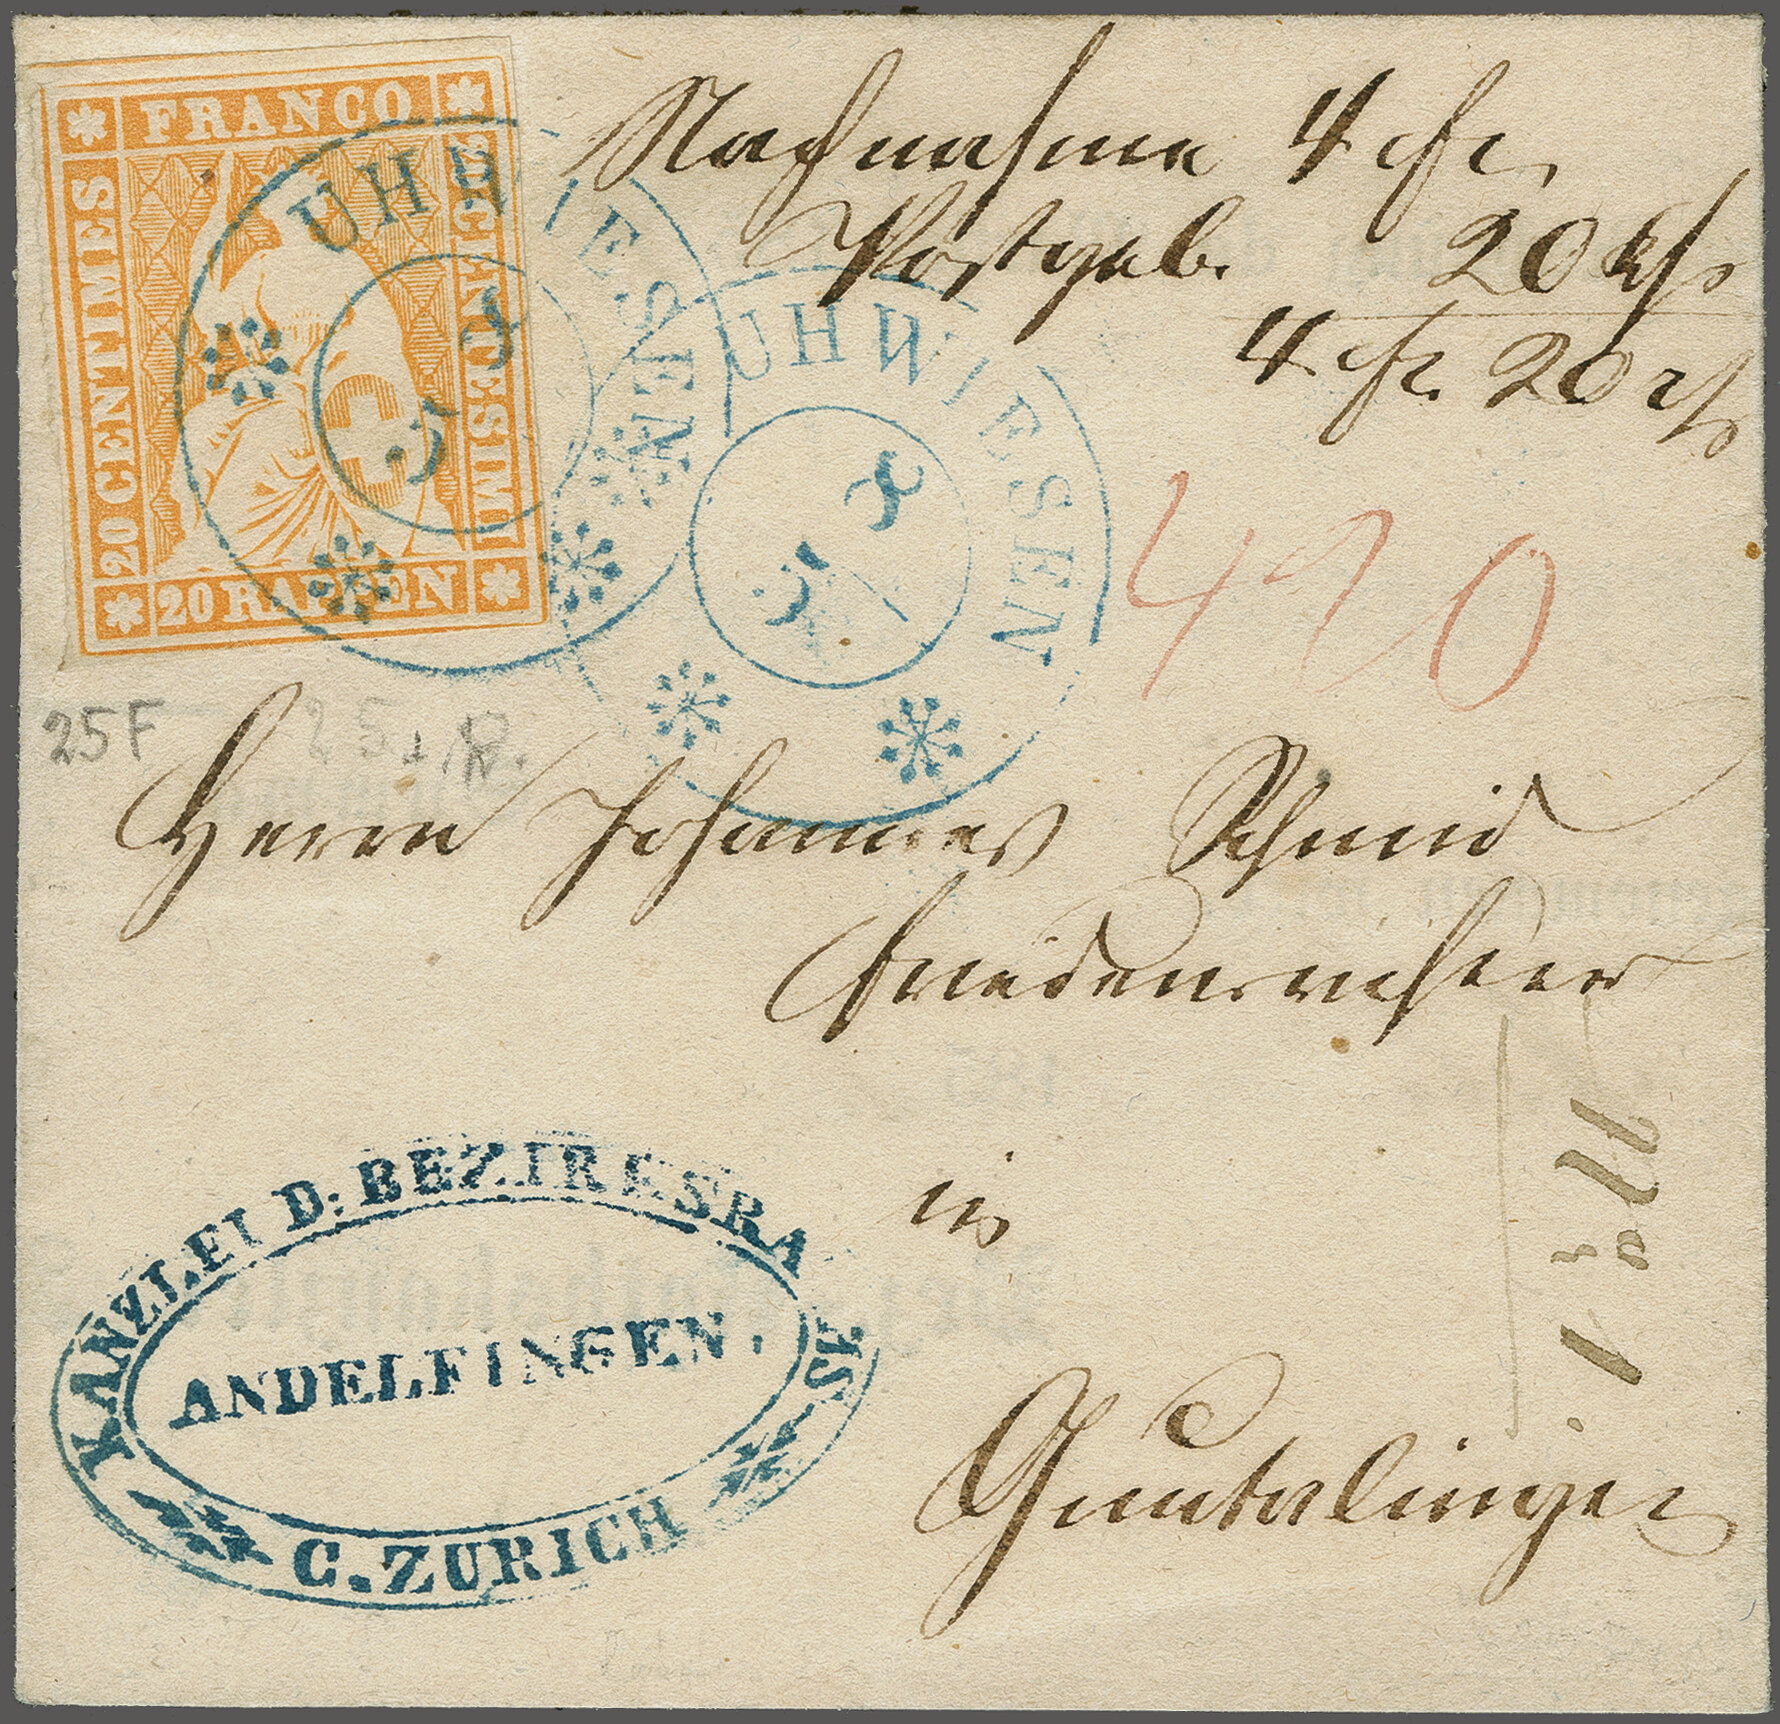 FRANCO
20 CENTIMES
20 CENTESIMI
20 RAPPEN
UHWIESEN
UHWIESEN
Nachnahme 4 fr.
Postgeb. 20 rp
4 fr. 20 rp
420
25F
Herrn Johannes Schmid
Friedensrichter
in
Guntalingen
KANZLEI D: BEZIRKSRA SE
ANDELFINGEN.
C. ZURICH